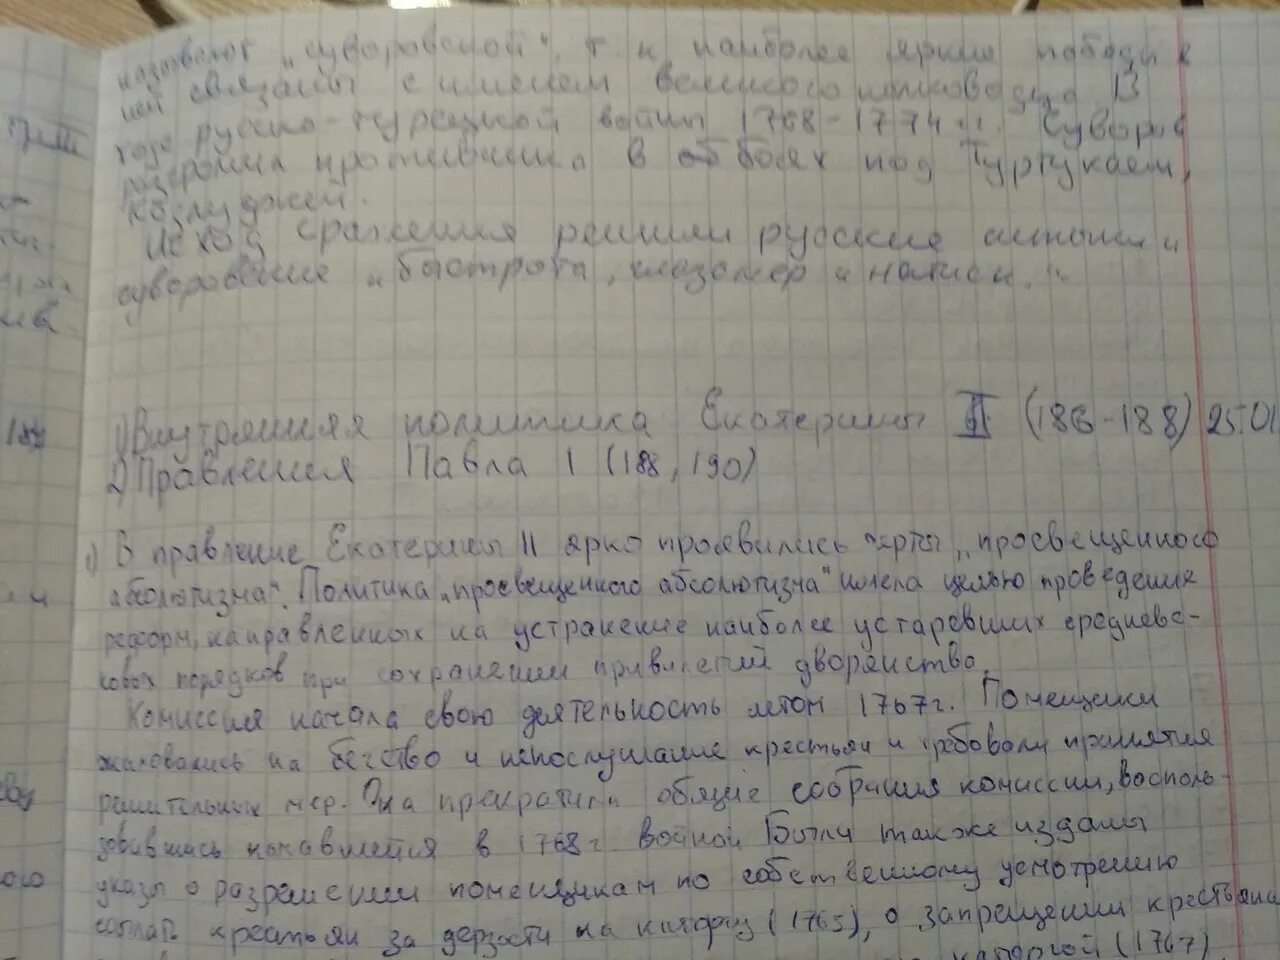 называют „суворовской", т.к наиболее яркие победы в
ней связаны с именем великого полководца. В
ходе русско-турецкой войны 1768-1774 г.г. Суворов
разгромил противника в боях под Туртукаем,
Козлуджей.
Исход сражения решили русские штыки и
суворовские „быстрота, глазомер и натиск."
1) Внутренняя политика Екатерины II (186-188) 25.01
2) Правления Павла I (188, 190)
1) В правление Екатерины II ярко проявились черты „просвещенного
абсолютизма". Политика „просвещенного абсолютизма" имела целью проведение
реформ, направленных на устранение наиболее устаревших средневе-
ковых порядков при сохранении привилегий дворянства.
Комиссия начала свою деятельность летом 1767г. Помещики
жаловались на бегство и непослушание крестьян и требовали принятия
решительных мер. Она прекратила общие собрания комиссии, восполь-
зовавшись начавшейся в 1768г войной Были также изданы
указы о разрешении помещикам по собственному усмотрению
ссылать крестьян за дерзость на каторгу (1765), о запрещении крестьянам
каторгой (1767)